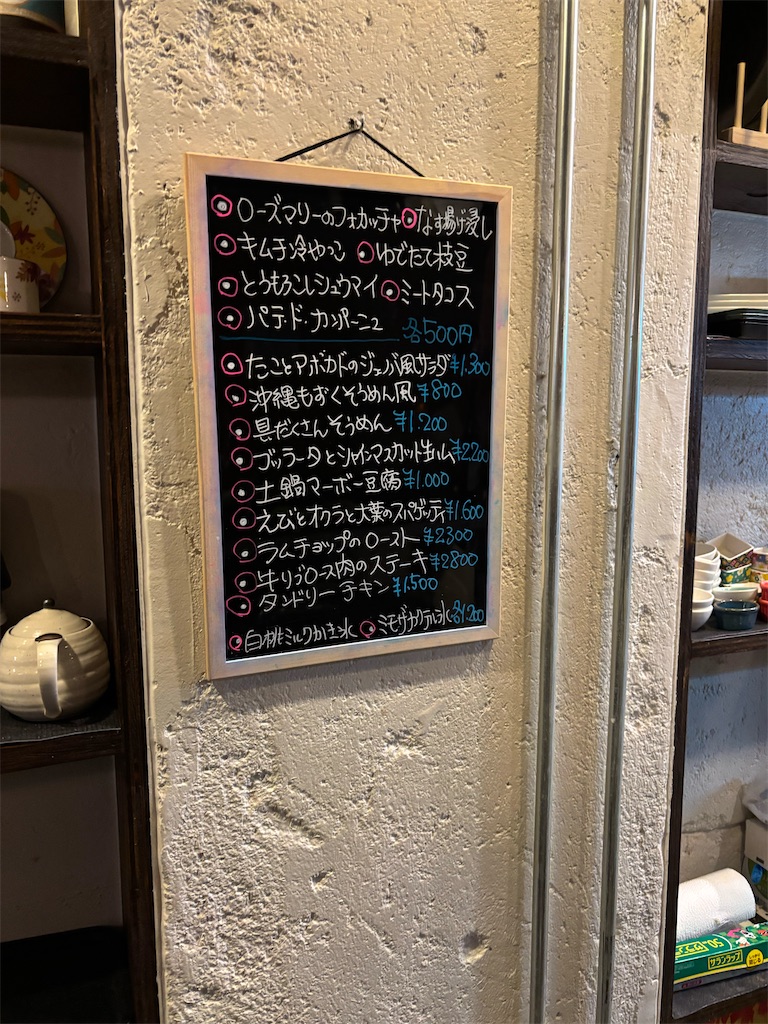 ローズマリーのフォカッチャ なす揚げ浸し
キムチ冷やっこ ゆでたて枝豆
とうもろこしシュウマイ ミートタコス
パテ・ド・カンパーニュ 各500円
たことアボカドのジェノバ風サラダ ¥1.300
沖縄もずくそうめん風 ¥800
具だくさんそうめん ¥1.200
ブッラータとシャインマスカット生ハム ¥2,200
土鍋マーボー豆腐 ¥1.000
えびとオクラと大葉のスパゲッティ ¥1.600
ラムチョップのロースト ¥2300
牛リブロース肉のステーキ ¥2800
タンドリーチキン ¥1.500
白桃ミルクかき氷 ミモザカクテル氷 各1.200
サランラップ
50m